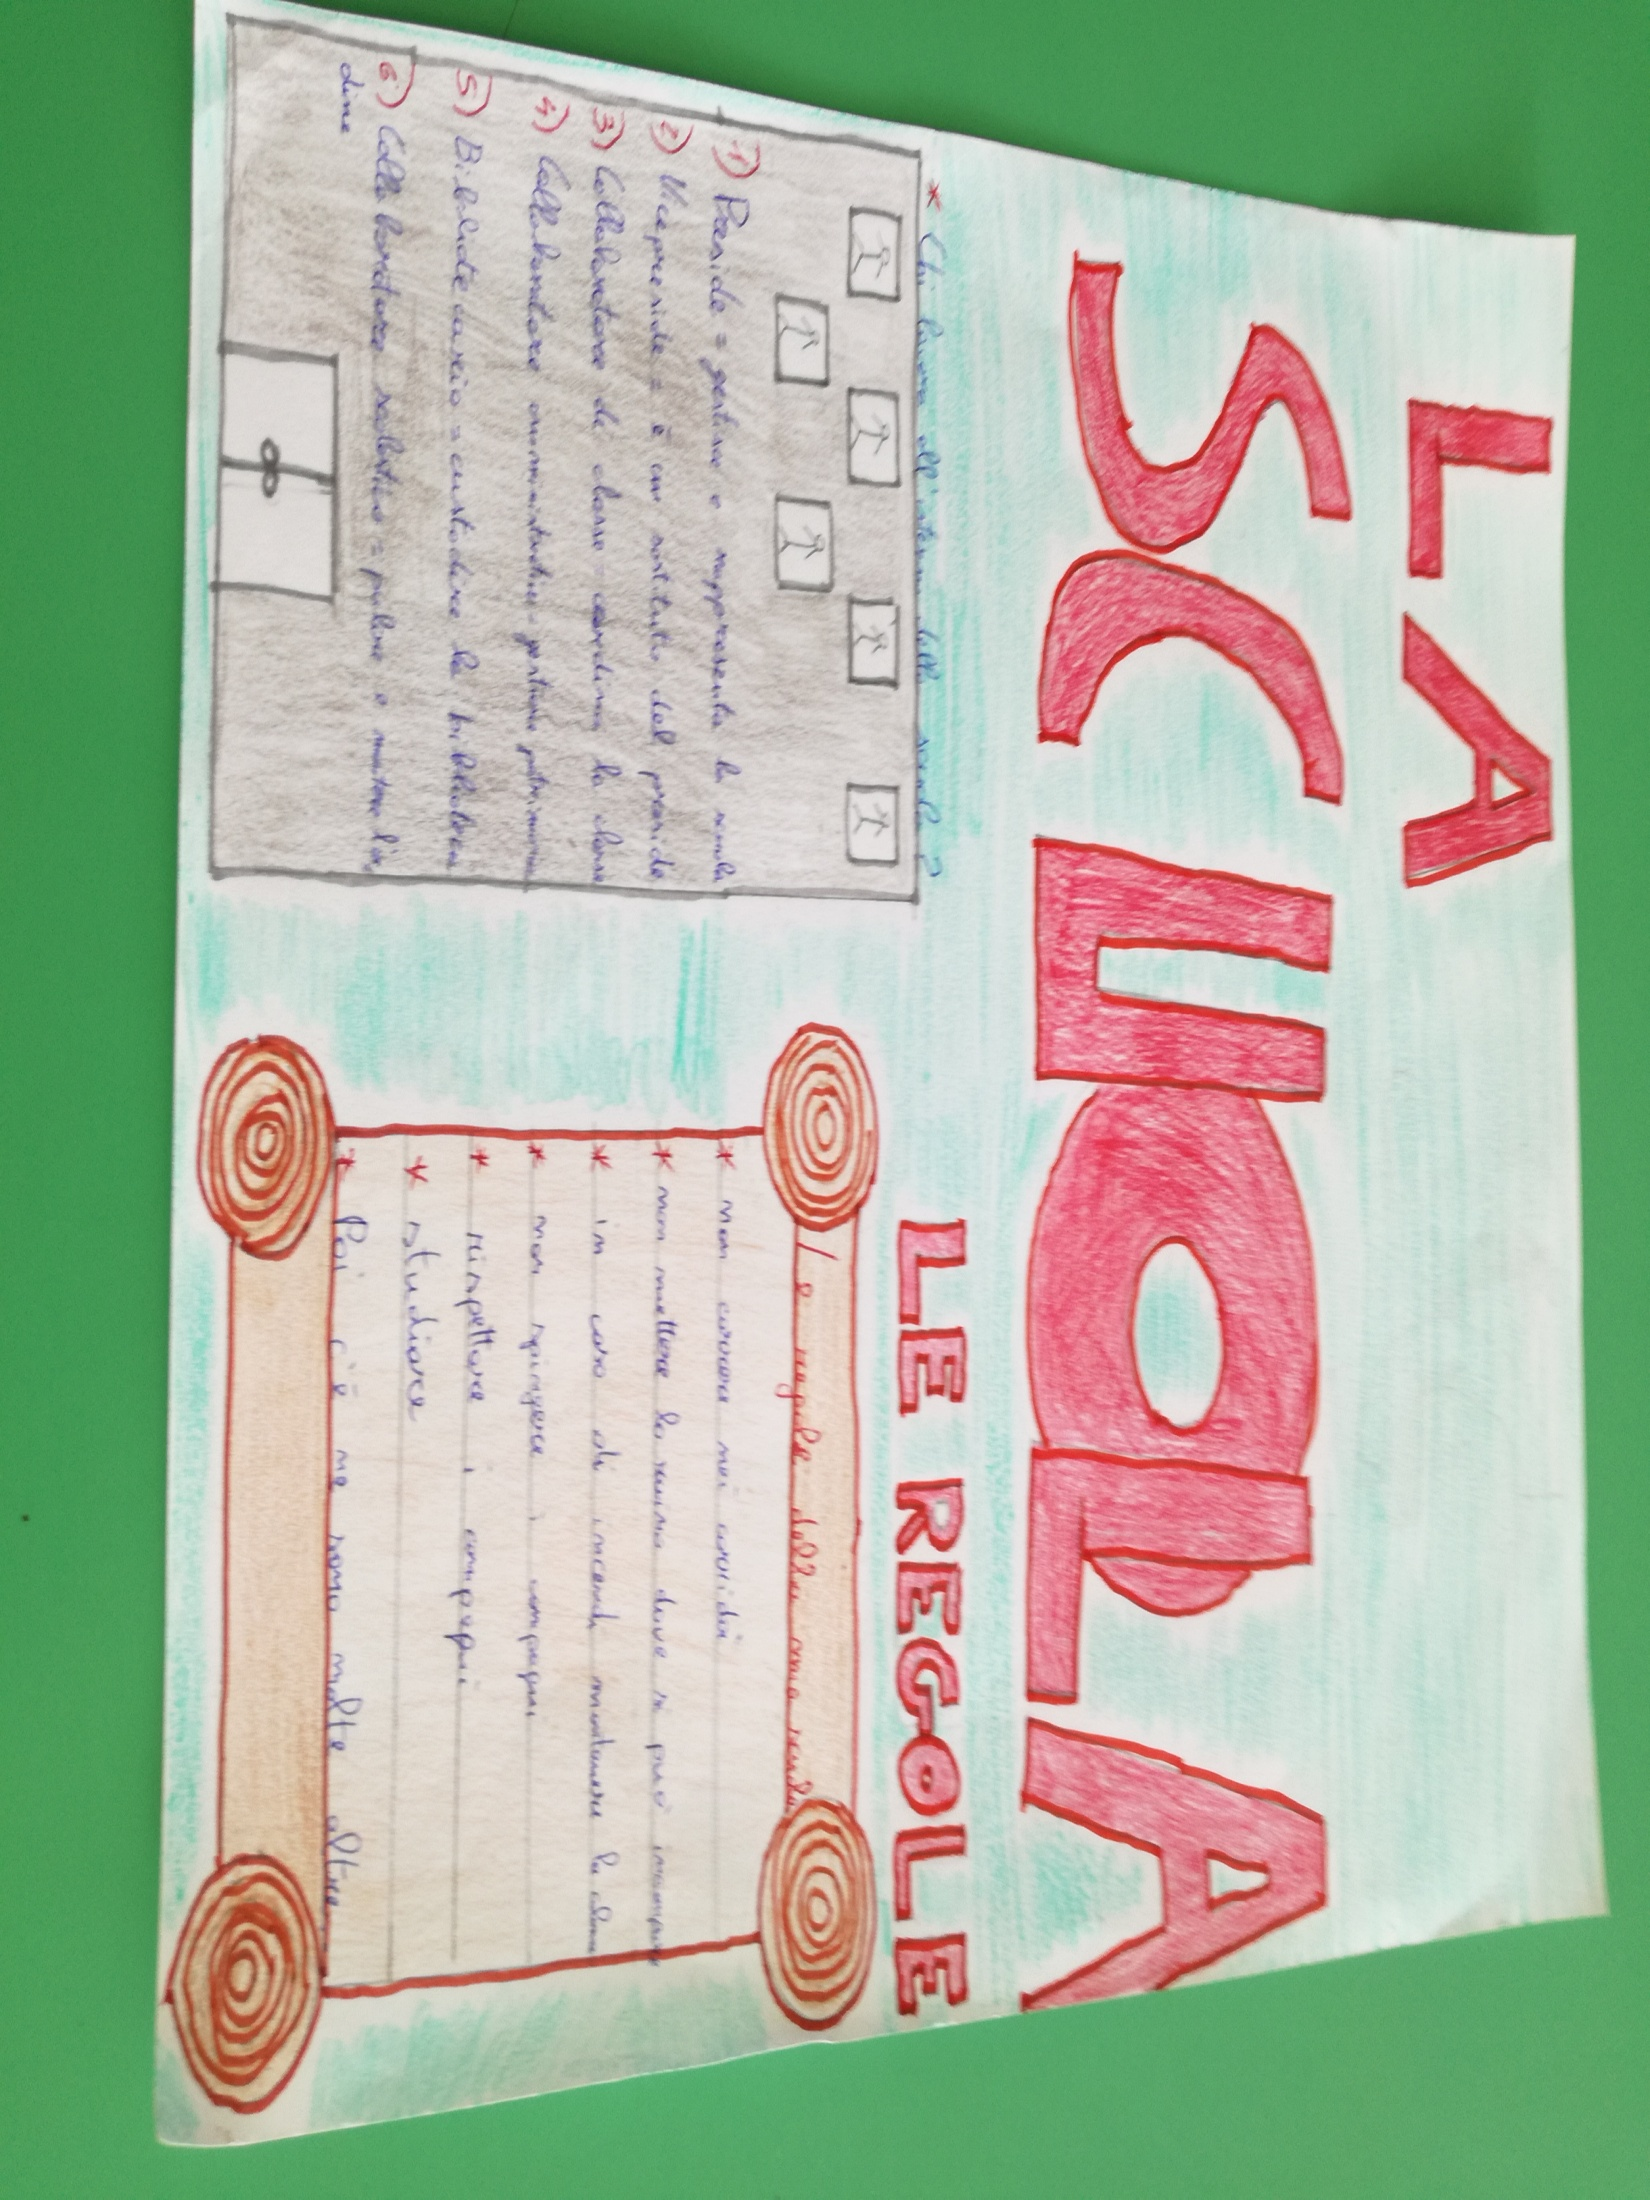 LA
SCUOLA
* Chi lavora all'interno della scuola?
1) Preside = gestisce e rappresenta la scuola
2) Vicepreside = è un sostituto del preside
3) Collaboratore di classe = coordina la classe
4) Collaboratore amministrativo = gestione patrimonio
5) Bibliotecario = custodire la biblioteca
6) Collaboratore scolastico = pulire e mettere l'or
dine
LE REGOLE
Le regole della mia scuola
* non correre nei corridoi
* non mettere la mano dove si può
* in caso di incendi mantenere la calma
* non spingere i compagni
* rispettare i compagni
* studiare
* Poi c'è ne sono molte altre